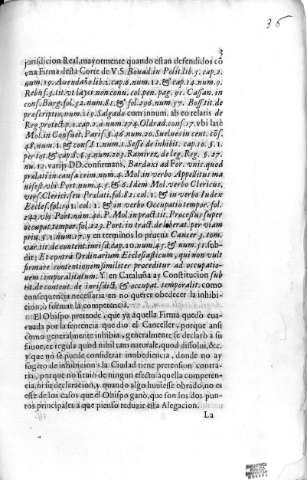 36
3
jurisdicion Real, mayormente quando estan defendidos cõ
vna Firma desta Corte de V.S. Bouad. in Polit. lib. 2. cap.
num. 19. Auendaño lib. 1. cap. num. & cap. 14. num. 9.
Rebuf. 3. tit. vt layci non conu. col. pen. pag. 91. Cassan. in
cons. Burg. fol. 32. num. 81. & fol. 296. num. 37. Boss. tit. de
num. Salgado com innum. ab eo relatis de
Reg. protect. p. 1. cap. 2. num. 274. Oldrad. cons. vbi latè
Mol. in Consuet. Paris. §. 46. num. 20. Suelues in cent. cõs.
48. num. 1. & cons. 81. num. 1. Sesse de inhibit. cap. 10. §. 1.
Ramirez, de leg. Reg. §. 27.
num. 12. varijs DD. confirmato, Bardaxi ad For. vnic. quod
prælati in causa rei num. 4. Mol. in verbo Appellitus ma
nifest. vbi Port. num. 45. & 6. Idem Mol. verbo Clericus,
vers. Clerici seu Prælati, fol. col. 1. & in verbo Iudex
Eccles. fol. col. 1. & in verbo Occupatio tempor. fol.
242. vbi Port. num. 40. P. Mol. in pract. tit. Processus super
occupat. tempor. fol. 223. Port. in tract. de liberat. per viam
priu. §. 1. num. 17. y en terminos lo præcus Cancer 3. tom.
var. tit. de content. iurisd. cap. 10. num. 45. & num. 51. sub-
dit; Et contrà Ordinarium Ecclesiasticum, qui non vult
firmare contentionem similiter proceditur ad occupatio-
nem temporalitatum. Y en Cataluña ay Constitucion sub
tit. de content. de iurisdict. & occupat. temporalit. como
consequencia necessaria en no querer obedecer la inhibi-
cion, ò firmar la competencia.
El Obispo pretende, que ya aquella Firma quedò eua-
cuada por la sentencia que diò el Canceller, porque ansi
como generalmente inhibia, generalmente se declarò à su
fauor, es regula quod nihil tam naturale, quod dissolui, &c.
y que no se puede considerar inobediencia, donde no ay
sugeto de inhibicion: la Ciudad tiene pretension contra-
ria, porque no siruiò de ningun efecto aquella competen-
cia, ni su declaracion, y quando algo huuiesse obrado, no es
esse de los casos que el Obispo ganò, que son los dos pun-
tos principales à que pienso reducir esta Alegacion.
La